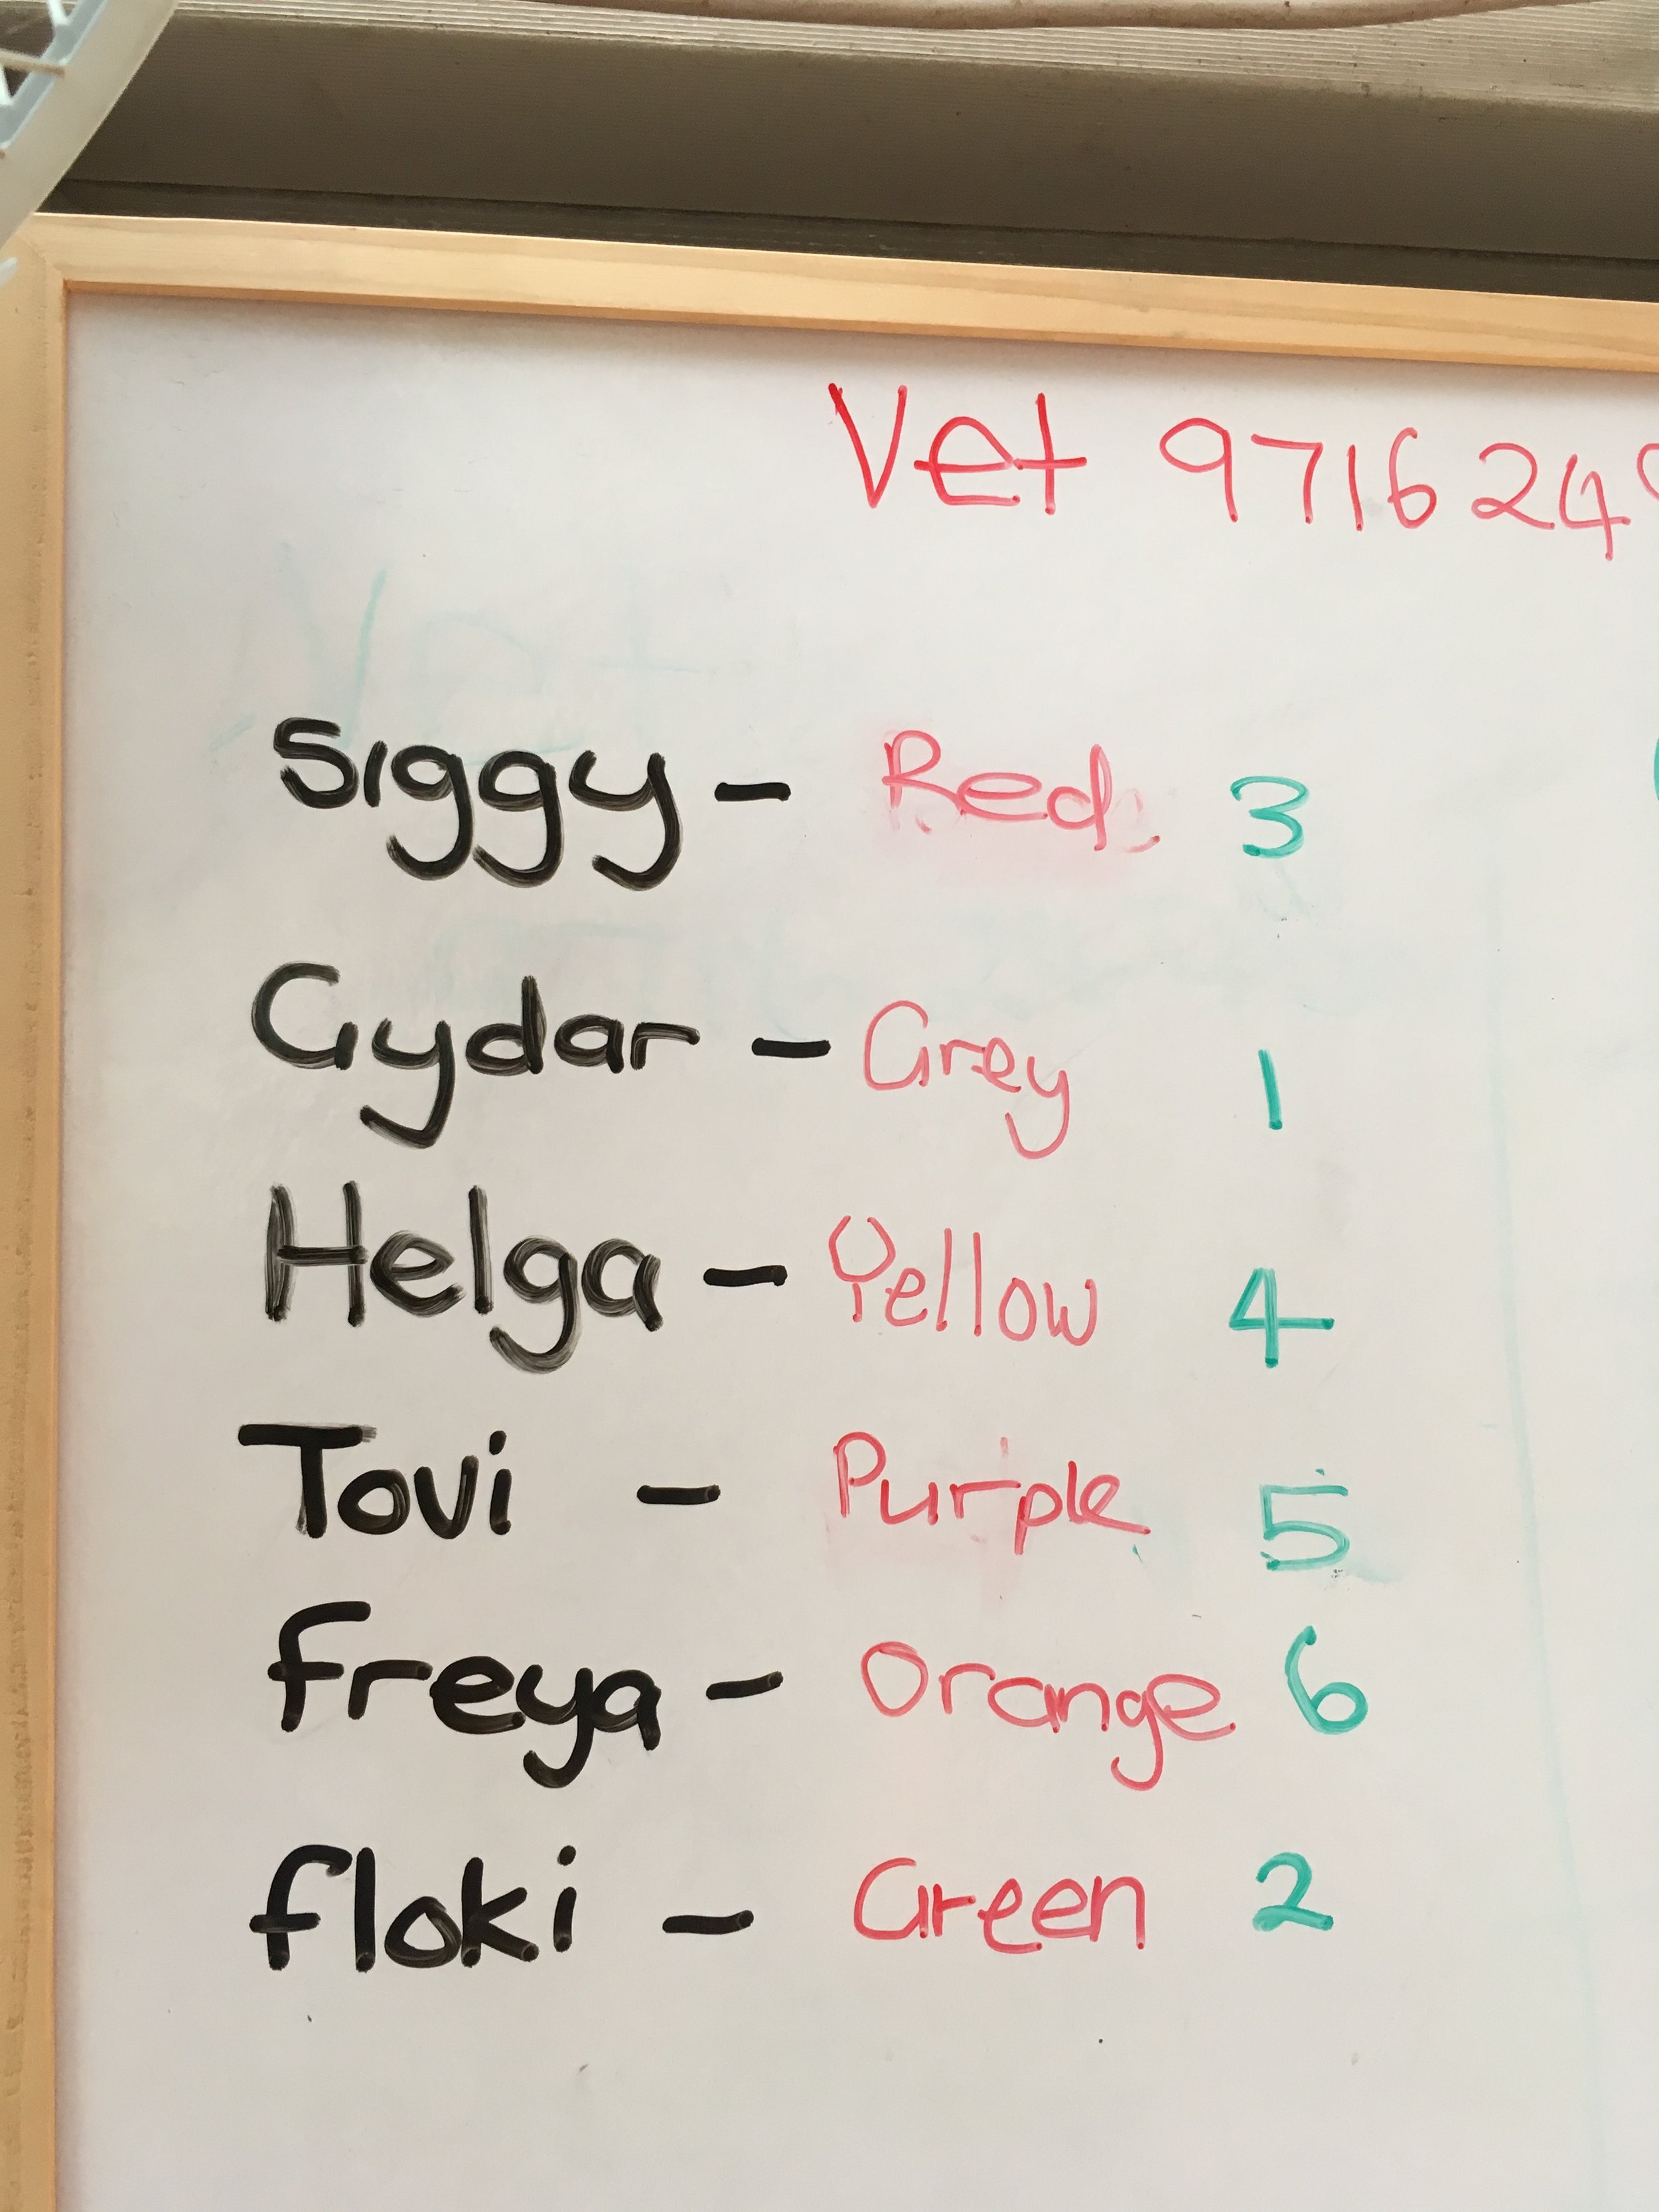 Vet 9716 24
Siggy - Red 3
Gydar - Grey 1
Helga - Yellow 4
Tovi - Purple 5
Freya - Orange 6
Floki - Green 2